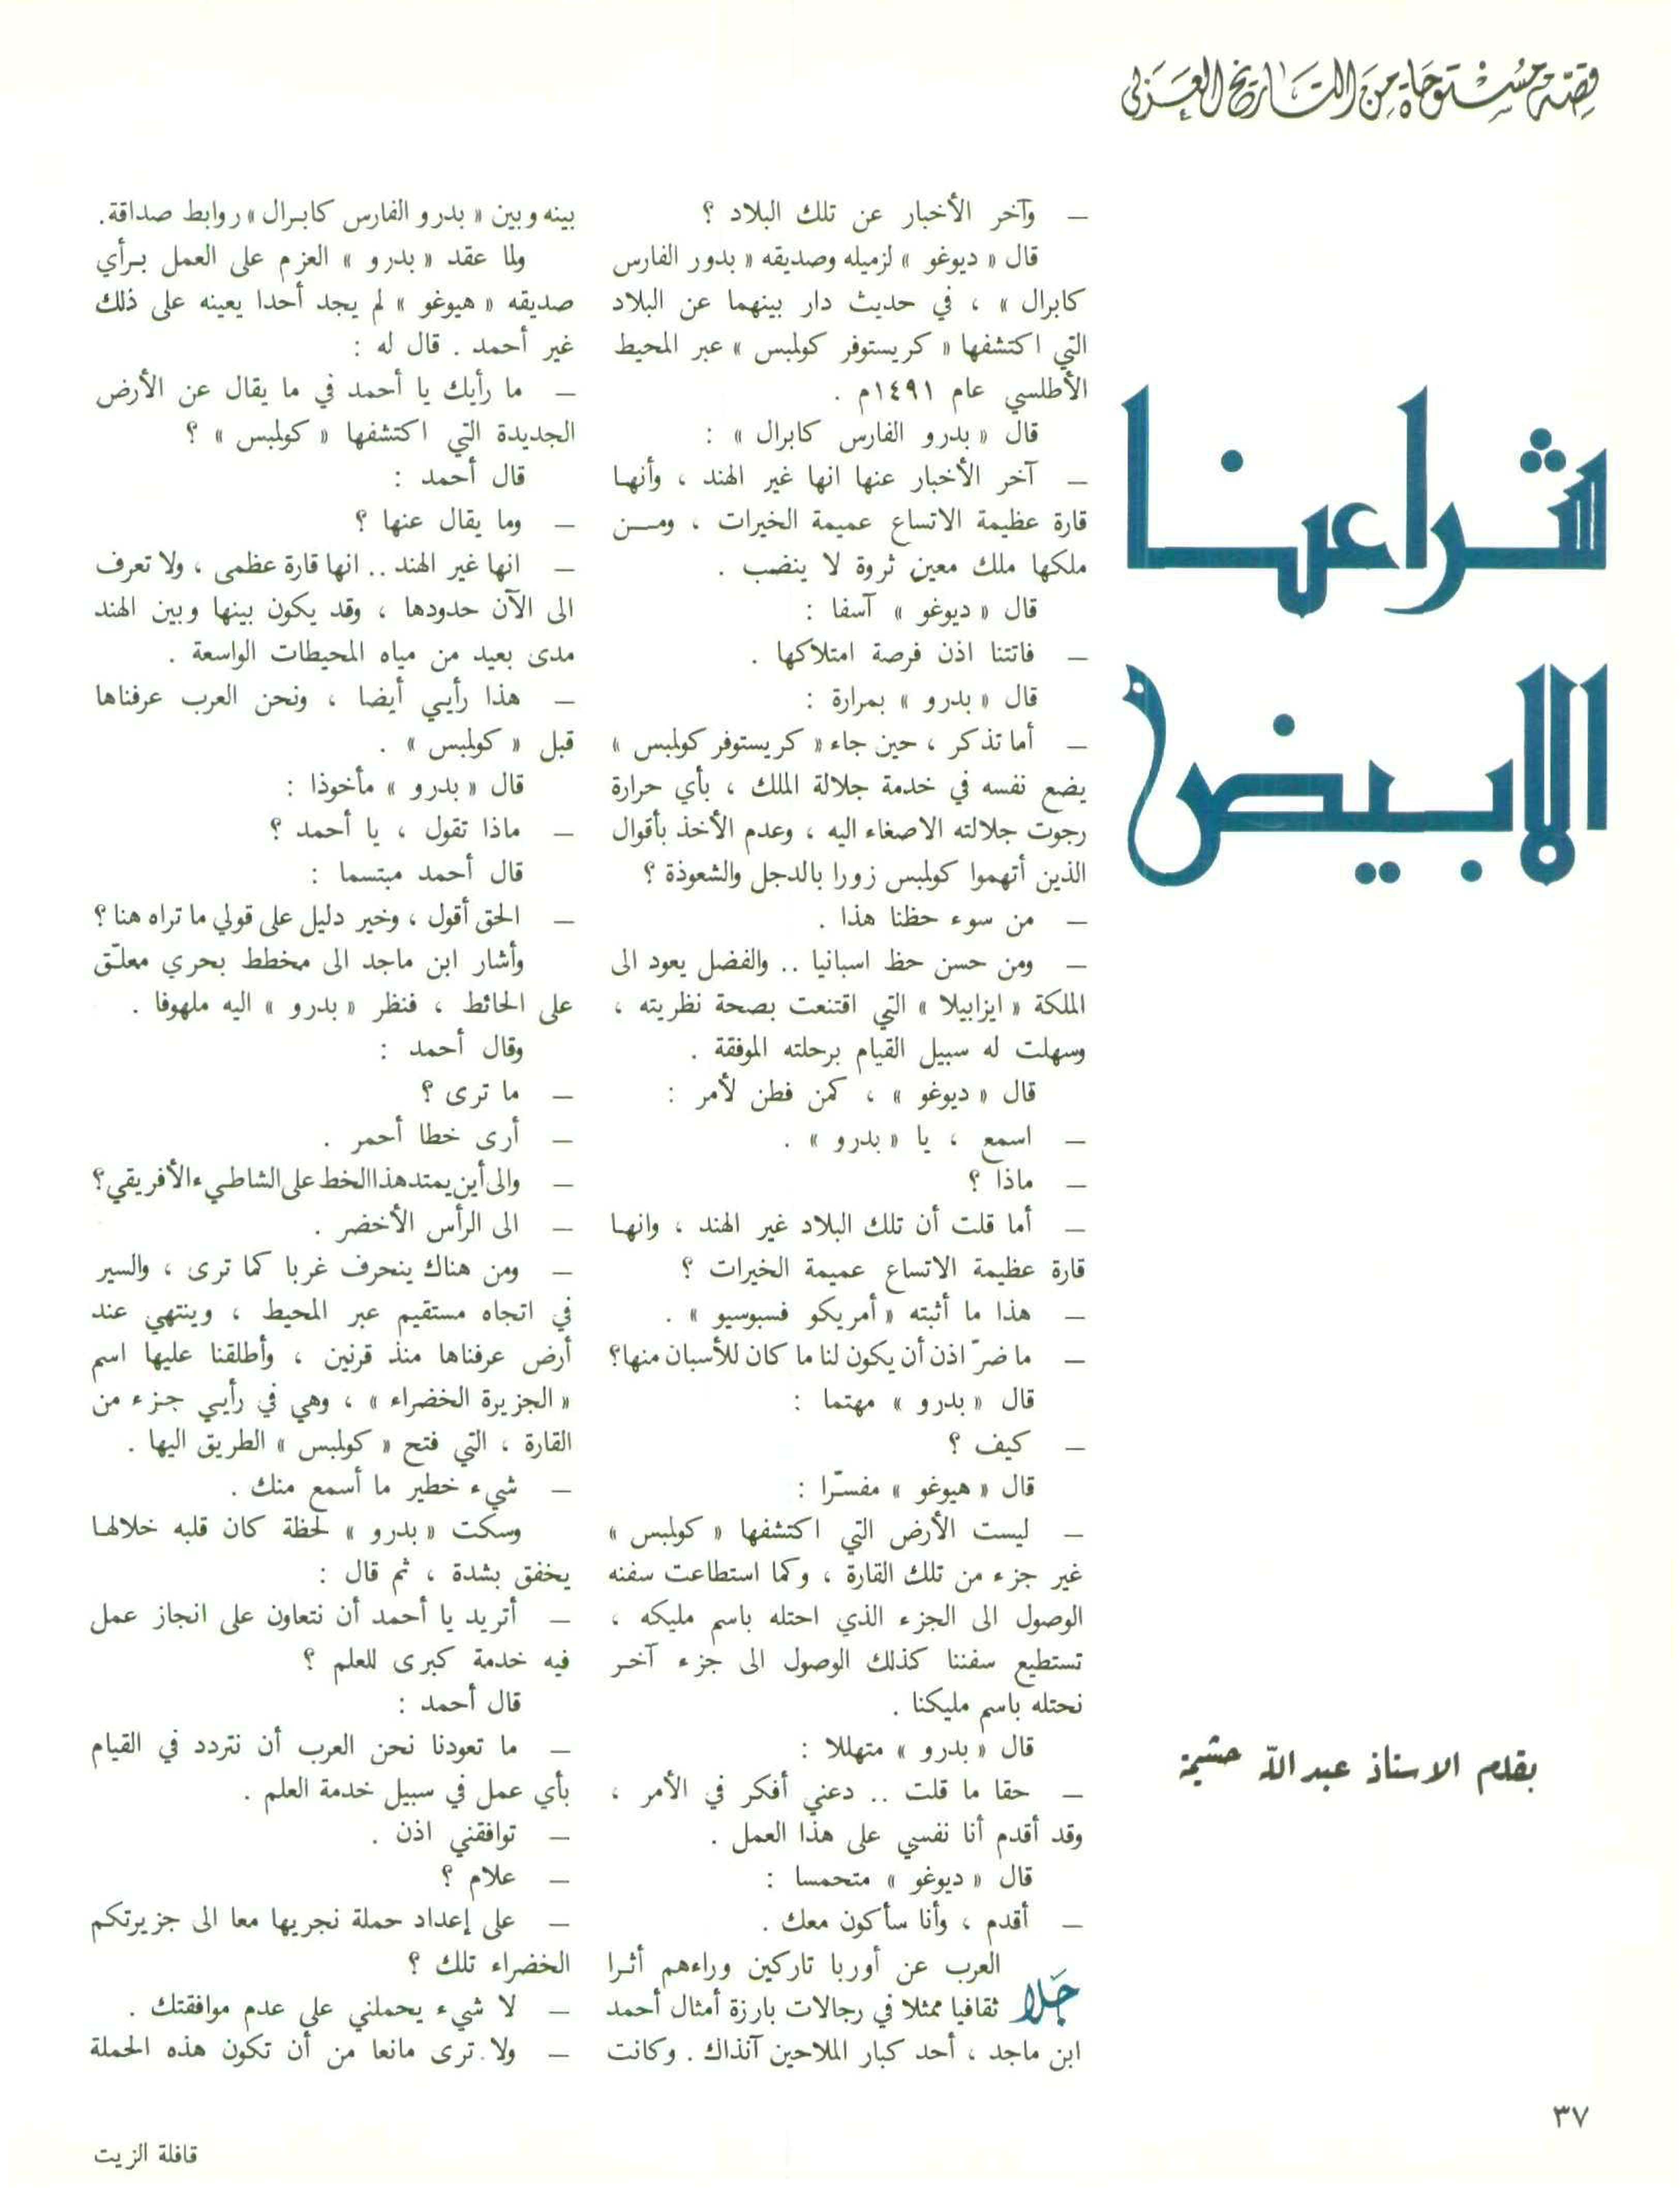 قصّة مستوحاة من التاريخ العربي
شراعنا
الابيض
بقلم الاستاذ عبد الله حشيمة
— وآخر الأخبار عن تلك البلاد ؟
قال « ديوغو » لزميله وصديقه « بدور الفارس
كابرال » ، في حديث دار بينهما عن البلاد
التي اكتشفها « كريستوفر كولمبس » عبر المحيط
الأطلسي عام ١٤٩١م .
قال « بدرو الفارس كابرال » :
— آخر الأخبار عنها انها غير الهند ، وأنها
قارة عظيمة الاتساع عميمة الخيرات ، ومن
ملكها ملك معين ثروة لا ينضب .
قال « ديوغو » آسفا :
— فاتتنا اذن فرصة امتلاكها .
قال « بدرو » بمرارة :
— أما تذكر ، حين جاء « كريستوفر كولمبس »
يضع نفسه في خدمة جلالة الملك ، بأي حرارة
رجوت جلالته الاصغاء اليه ، وعدم الأخذ بأقوال
الذين أتهموا كولمبس زورا بالدجل والشعوذة ؟
— من سوء حظنا هذا .
— ومن حسن حظ اسبانيا .. والفضل يعود الى
الملكة « ايزابيلا » التي اقتنعت بصحة نظريته ،
وسهلت له سبيل القيام برحلته الموفقة .
قال « ديوغو » ، كمن فطن لأمر :
— اسمع ، يا « بدرو » .
— ماذا ؟
— أما قلت أن تلك البلاد غير الهند ، وانها
قارة عظيمة الاتساع عميمة الخيرات ؟
— هذا ما أثبته « أمريكو فسبوسيو » .
— ما ضرّ اذن أن يكون لنا ما كان للأسبان منها؟
قال « بدرو » مهتما :
— كيف ؟
قال « هيوغو » مفسّرا :
— ليست الأرض التي اكتشفها « كولمبس »
غير جزء من تلك القارة ، وكما استطاعت سفنه
الوصول الى الجزء الذي احتله باسم مليكه ،
تستطيع سفننا كذلك الوصول الى جزء آخر
نحتله باسم مليكنا .
قال « بدرو » متهللا :
— حقا ما قلت .. دعني أفكر في الأمر ،
وقد أقدم أنا نفسي على هذا العمل .
قال « ديوغو » متحمسا :
— أقدم ، وأنا سأكون معك .
جَلا العرب عن أوربا تاركين وراءهم أثرا
ثقافيا ممثلا في رجالات بارزة أمثال أحمد
ابن ماجد ، أحد كبار الملاحين آنذاك . وكانت
بينه وبين « بدرو الفارس كابرال » روابط صداقة.
ولما عقد « بدرو » العزم على العمل برأي
صديقه « هيوغو » لم يجد أحدا يعينه على ذلك
غير أحمد . قال له :
— ما رأيك يا أحمد في ما يقال عن الأرض
الجديدة التي اكتشفها « كولمبس » ؟
قال أحمد :
— وما يقال عنها ؟
— انها غير الهند .. انها قارة عظمى ، ولا تعرف
الى الآن حدودها ، وقد يكون بينها وبين الهند
مدى بعيد من مياه المحيطات الواسعة .
— هذا رأيي أيضا ، ونحن العرب عرفناها
قبل « كولمبس » .
قال « بدرو » مأخوذا :
— ماذا تقول ، يا أحمد ؟
قال أحمد مبتسما :
— الحق أقول ، وخير دليل على قولي ما تراه هنا ؟
وأشار ابن ماجد الى مخطط بحري معلّق
على الحائط ، فنظر « بدرو » اليه ملهوفا .
وقال أحمد :
— ما ترى ؟
— أرى خطا أحمر .
— والى أين يمتد هذا الخط على الشاطيء الأفريقي؟
— الى الرأس الأخضر .
— ومن هناك ينحرف غربا كما ترى ، والسير
في اتجاه مستقيم عبر المحيط ، وينتهي عند
أرض عرفناها منذ قرنين ، وأطلقنا عليها اسم
« الجزيرة الخضراء » ، وهي في رأيي جزء من
القارة ، التي فتح « كولمبس » الطريق اليها .
— شيء خطير ما أسمع منك .
وسكت « بدرو » لحظة كان قلبه خلالها
يخفق بشدة ، ثم قال :
— أتريد يا أحمد أن نتعاون على انجاز عمل
فيه خدمة كبرى للعلم ؟
قال أحمد :
— ما تعودنا نحن العرب أن نتردد في القيام
بأي عمل في سبيل خدمة العلم .
— توافقني اذن .
— علام ؟
— على إعداد حملة نجريها معا الى جزيرتكم
الخضراء تلك ؟
— لا شيء يحملني على عدم موافقتك .
— ولا ترى مانعا من أن تكون هذه الحملة
٣٧
قافلة الزيت